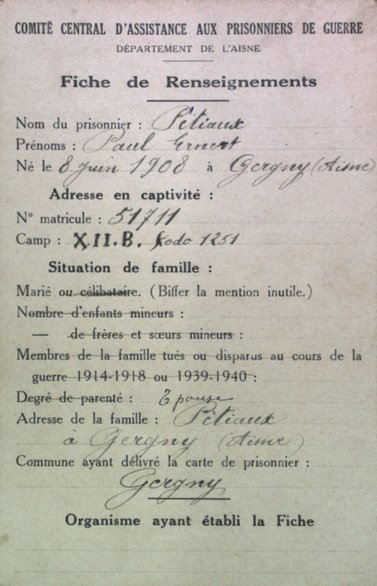 COMITÉ CENTRAL D'ASSISTANCE AUX PRISONNIERS DE GUERRE
DÉPARTEMENT DE L'AISNE
Fiche de Renseignements
Nom du prisonnier : Pétiaux
Prénoms : Paul Ernest
Né le 8 Juin 1908 à Gergny (Aisne)
Adresse en captivité :
N° matricule : 51711
Camp : X.II.B. Kodo 1251
Situation de famille :
Marié ou célibataire. (Biffer la mention inutile.)
Nombre d'enfants mineurs :
— de frères et sœurs mineurs :
Membres de la famille tués ou disparus au cours de la
guerre 1914-1918 ou 1939-1940 :
Degré de parenté : Epouse
Adresse de la famille : Pétiaux
à Gergny (Aisne)
Commune ayant délivré la carte de prisonnier :
Gergny
Organisme ayant établi la Fiche